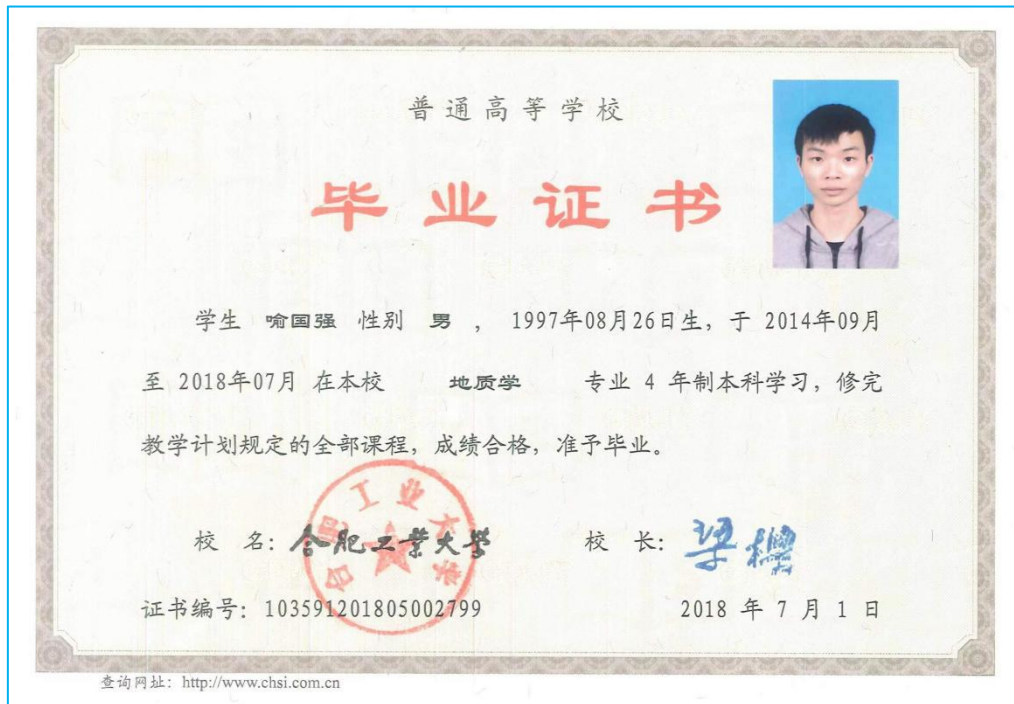 普通高等学校
毕业证书
学生 喻国强 性别 男 ， 1997年08月26日生，于 2014年09月
至 2018年07月 在本校 地质学 专业 4 年制本科学习，修完
教学计划规定的全部课程，成绩合格，准予毕业。
合肥工业大学
校 名：合肥工业大学 校 长：梁樑
证书编号：103591201805002799 2018 年 7 月 1 日
查询网址：http://www.chsi.com.cn